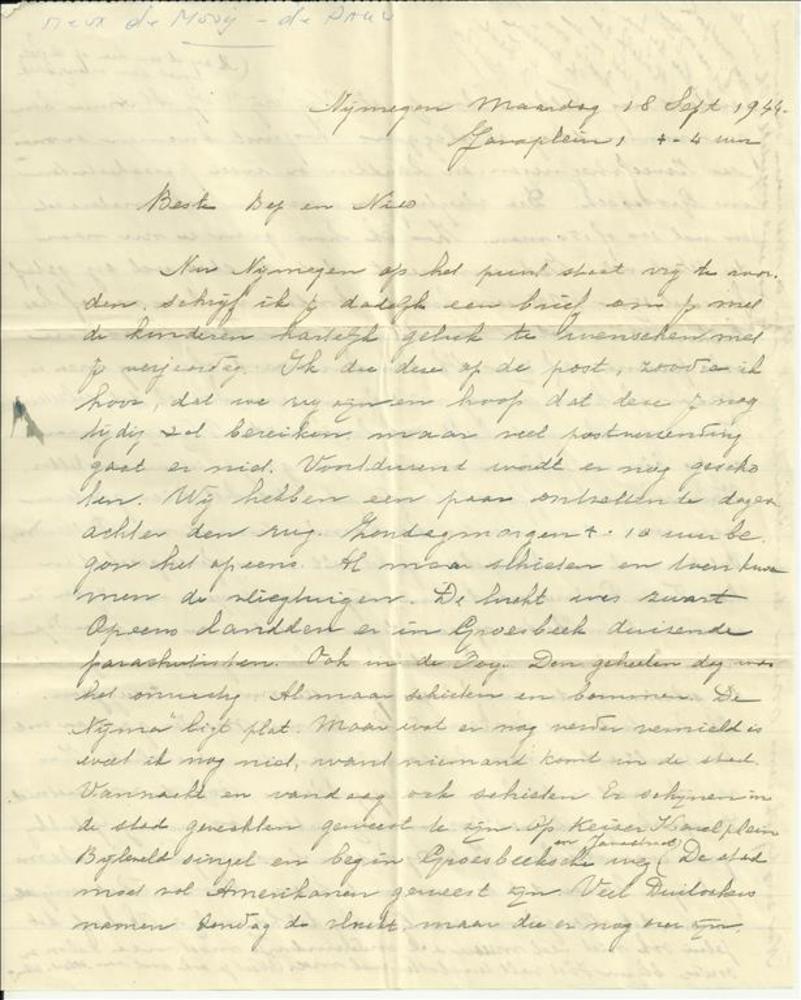 mevr de Mooy - de Pauw
Nijmegen Maandag 18 Sept 1944.
Javaplein 1 ± 4 uur
Beste Bep en Nico
Nu Nijmegen op het punt staat vrij te wor.
den, schrijf ik je dadelijk een brief om je met
de kinderen hartelijk geluk te wenschen met
je verjaardag. Ik doe deze op de post, zoodra ik
hoor, dat we vrij zijn en hoop dat deze je nog
tijdig zal bereiken maar veel postverzending
gaat er niet. Voortdurend wordt er nog gescho
ten. Wij hebben een paar ontzettende dagen
achter den rug. Zondagmorgen ± 10 uur be.
gon het opeens. Al maar schieten en toen kwa
men de vliegtuigen. De lucht was zwart
Opeens landden er in Groesbeek duizende
parachutisten. Ook in de Ooy. Den geheelen dag was
het onrustig. Al maar schieten en bommen. De
"Nyma" ligt plat. Maar wat er nog verder vernield is
weet ik nog niet, want niemand komt in de stad.
Vannacht en vandaag ook schieten Er schijnen in
de stad gevechten geweest te zijn. Op Keizer Karelplein
en Javastraat
Bijleveld singel en begin Groesbeeksche weg. De stad
moet vol Amerikanen geweest zijn. Veel Duitschers
namen Zondag de vlucht, maar die er nog over zijn,